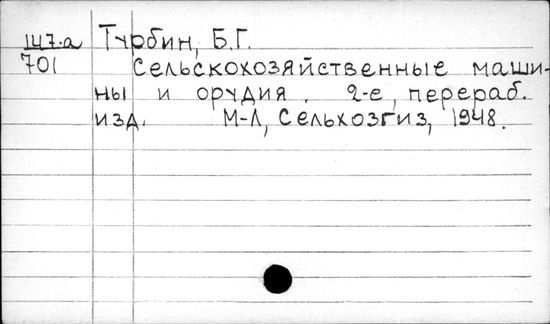 147.а Турбин, Б.Г.
701 Сельскохозяйственные маши-
ны и орудия. 2-е, перераб.
изд. М-Л, Сельхозгиз, 1948.